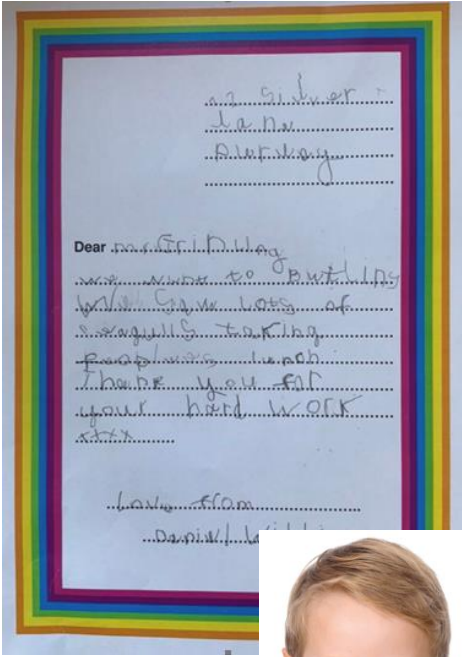 12 Silver
lane
Purley
Dear mr.Grinling
we went to Butlins
We saw lots of
seagulls taking
peoples lunch
Thank you for
your hard work
xxxx
Love from
Daniel